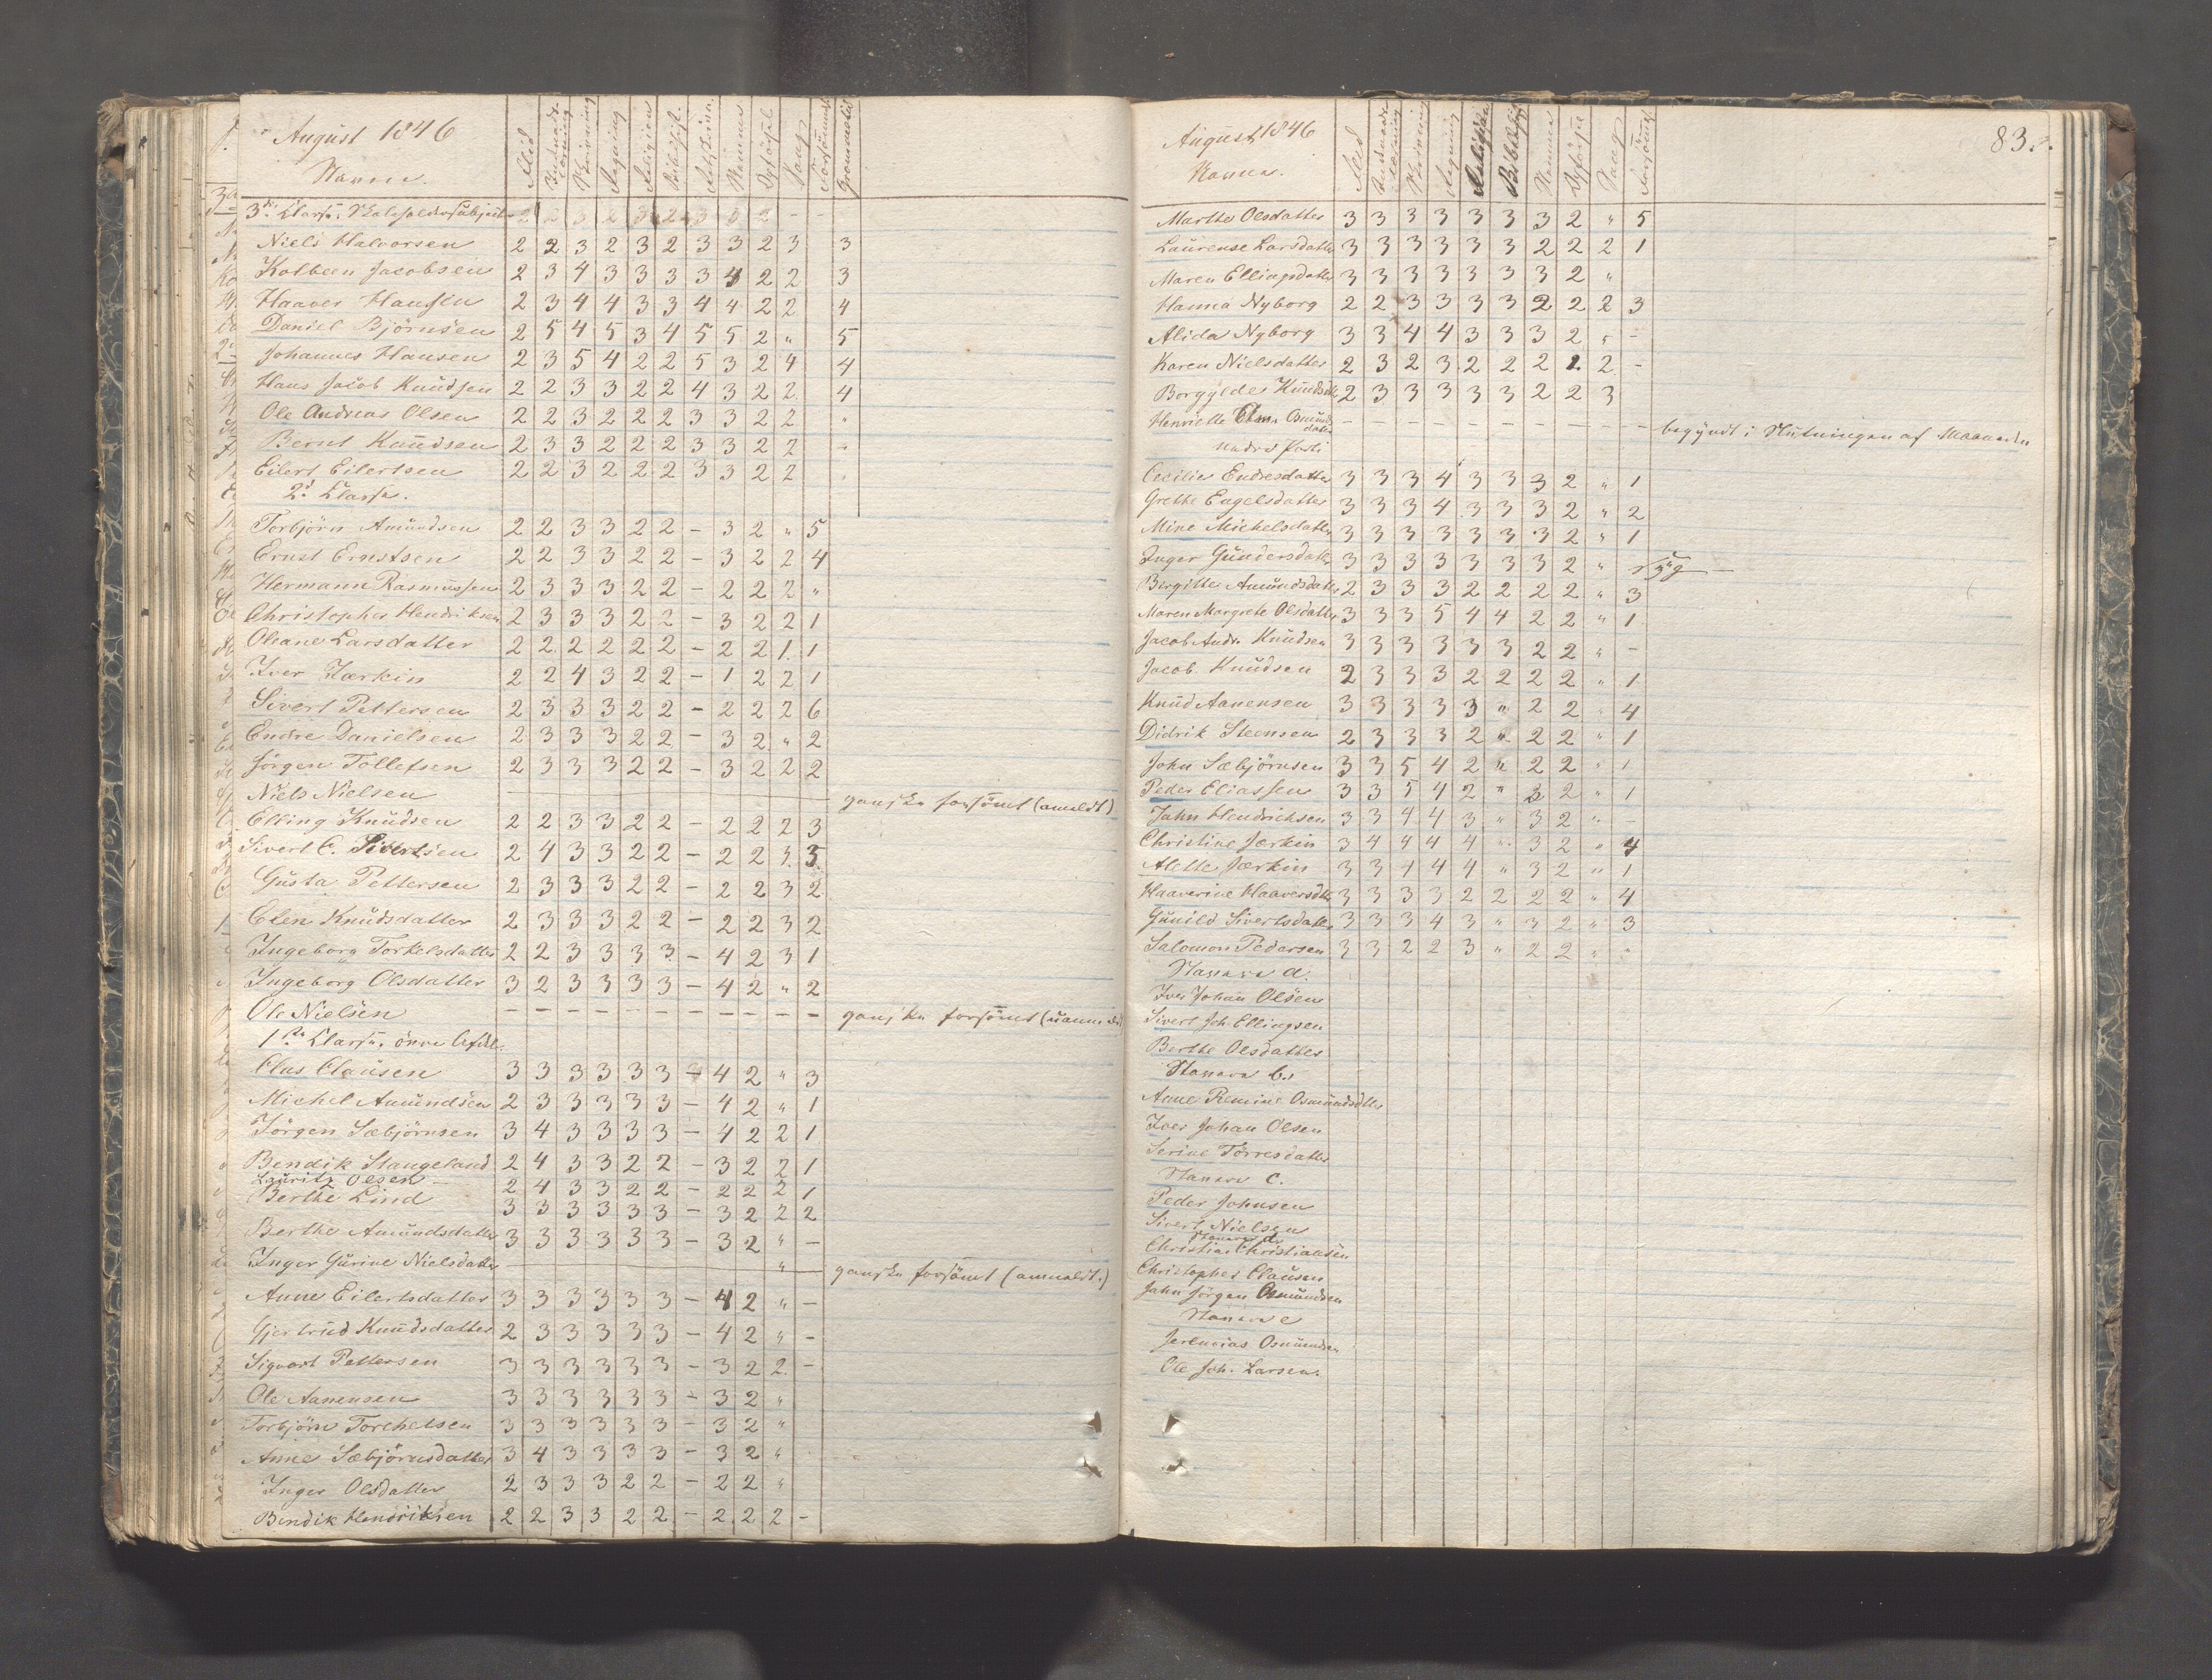 August 1846
Navne.
Flid
Skrivning
Regning
Religion
Bibelhist.
Nemme
Opförsel
Sang
Forsömmelse
Grammatik
3die Classe.
Niels Halvorsen 2 2 3 2 3 2 3 3 2 3 3
Kolbeen Jacobsen 2 3 4 3 3 3 3 4 2 2 3
Haaver Hansen 2 3 4 4 3 3 4 4 2 2 4
Daniel Björnsen 2 5 4 5 3 4 5 5 2 " 5
Johannes Hansen 2 3 5 4 2 2 5 3 2 4 4
Hans Jacob Knudsen 2 2 3 3 2 2 4 3 2 2 4
Ole Andreas Olsen 2 2 3 2 2 2 3 3 2 2 "
Bernt Knudsen 2 3 3 2 2 2 3 3 2 2 -
Eilert Eilertsen 2 2 3 2 2 2 3 3 2 2
2d Classe.
Torbjörn Amundsen 2 2 3 3 2 2 - 3 2 " 5
Ernst Ernstsen 2 2 3 3 2 2 - 3 2 2 4
Hermann Rasmussen 2 3 3 3 2 2 - 2 2 2 "
Christopher Hendriksen 2 3 3 3 2 2 - 3 2 2 1
Oleane Larsdatter 2 2 2 2 2 2 - 2 2 1 1
Iver Jærkin 2 2 4 3 2 2 - 1 2 2 1
Sivert Pettersen 2 3 3 3 2 2 - 2 2 2 6
Endre Danielsen 2 3 3 3 2 2 - 3 2 " 2
Jörgen Tollefsen 2 3 3 3 2 2 - 3 2 2 2
Niels Nielsen ganske forsömt (anmeldt)
Elling Knudsen 2 2 3 3 2 2 - 2 2 2 3
Sivert C. Sivertsen 2 4 3 3 2 2 - 2 2 3 3
Gusta Pettersen 2 3 3 3 2 2 - 2 2 3 2
Elen Knudsdatter 2 3 3 3 2 2 - 2 2 3 2
Ingeborg Torkelsdatter 2 2 3 3 3 3 - 4 2 3 1
Ingeborg Olsdatter 3 2 3 3 3 3 - 4 2 " 2
Ole Nielsen - - - - - - - - - - - ganske forsömt
1ste Classe. övre Afdel.
Clus Clausen 3 3 3 3 3 3 - 4 2 " 3
Michel Amundsen 2 3 3 3 3 3 - 4 2 " 1
Jörgen Sæbjörnsen 3 4 3 3 3 3 - 4 2 2 1
Bendik Stangeland 2 4 3 3 2 2 - 3 2 2 1
Lauritz Olsen 2 4 3 3 2 2 - 2 2 2 1
Berthe Lind 3 3 3 3 3 3 - 3 2 2 2
Berthe Amundsdatter 3 3 3 3 3 3 - 3 2 " -
Inger Gurine Nielsdatter " - ganske forsömt (anmeldt.)
Anne Eilertsdatter 3 3 3 3 3 3 - 4 2 " -
Gjertrud Knudsdatter 2 3 3 3 3 3 - 4 2 " -
Sigvart Pettersen 3 3 3 3 3 3 - 3 2 2 -
Ole Aanensen 3 3 3 3 3 3 - 3 2 "
Torbjörn Torchelsen 3 3 3 3 3 3 - 3 2 "
Anne Sæbjörnsdatter 3 4 3 3 3 3 - 3 2 "
Inger Olsdatter 2 3 3 3 2 2 - 2 2 "
Bendik Hendriksen 2 2 3 3 2 2 - 2 2 2 -
August 1846
83.
Navne.
Flid
Skrivning
Regning
Religion
Bibelhist
Nemme
Opförsel
Sang
Forsömmelse
Marthe Olsdatter 3 3 3 3 3 3 3 2 " 5
Laurense Larsdatter 3 3 3 3 3 3 2 2 2 1
Maren Ellingsdatter 3 3 3 3 3 3 3 2 "
Hanna Nyborg 2 2 3 3 3 3 2 2 2 3
Alida Nyborg 3 3 4 4 3 3 3 2 " -
Karen Nielsdatter 2 3 2 3 2 2 2 2 2 -
Borgylde Knudsdtr 2 3 3 3 3 3 2 2 3
Henriette Elm. Osmundsdatter - - - - - - - - - - begyndt i Slutningen af Maaneden
nedre Parti
Cecilie Endresdatter 3 3 3 4 3 3 3 2 " 1
Grethe Engelsdatter 3 3 3 4 3 3 3 2 " 2
Mine Michelsdatter 3 3 3 3 3 3 3 2 " 1
Inger Gundersdatter 3 3 3 3 3 3 3 2 " syg
Bergitte Amundsdatter 2 3 3 3 2 2 2 2 " 3
Maren Margrete Olsdatter 3 3 3 5 4 4 2 2 " 1
Jacob Andr. Knudsen 3 3 3 3 3 3 2 2 " -
Jacob Knudsen 2 3 3 3 2 2 2 2 " 1
Knud Aanensen 3 3 3 3 3 " 2 2 " 4
Didrik Steensen 2 3 3 3 2 " 2 2 " 1
John Sæbjörnsen 3 3 5 4 2 " 2 2 " 1
Peder Eliassen 3 3 5 4 2 " 3 2 " 1
John Hendrichsen 3 3 4 4 3 " 3 2 " -
Christine Jærkin 3 4 4 4 4 " 3 2 " 4
Alette Jærkin 3 3 4 4 4 " 3 2 " 1
Haaverine Haaversdtr 3 3 3 3 2 2 2 2 " 4
Gunild Sivertsdatter 3 3 3 4 3 " 3 2 " 3
Salomon Pedersen 3 3 2 2 3 " 2 2 " "
Stavere a.
Iver Johan Olsen
Sivert Joh. Ellingsen
Berthe Olsdatter
Stavere b.
Anne Remine Osmundsdtter
Iver Johan Olsen
Serine Törresdatter
Stavere C.
Peder Johnsen
Sivert Nielsen
Stavere d.
Christian Christiansen
Christopher Clausen
John Jörgen Osmundsen
Stavere e
Jeremias Osmundsen
Ole Joh. Larsen.